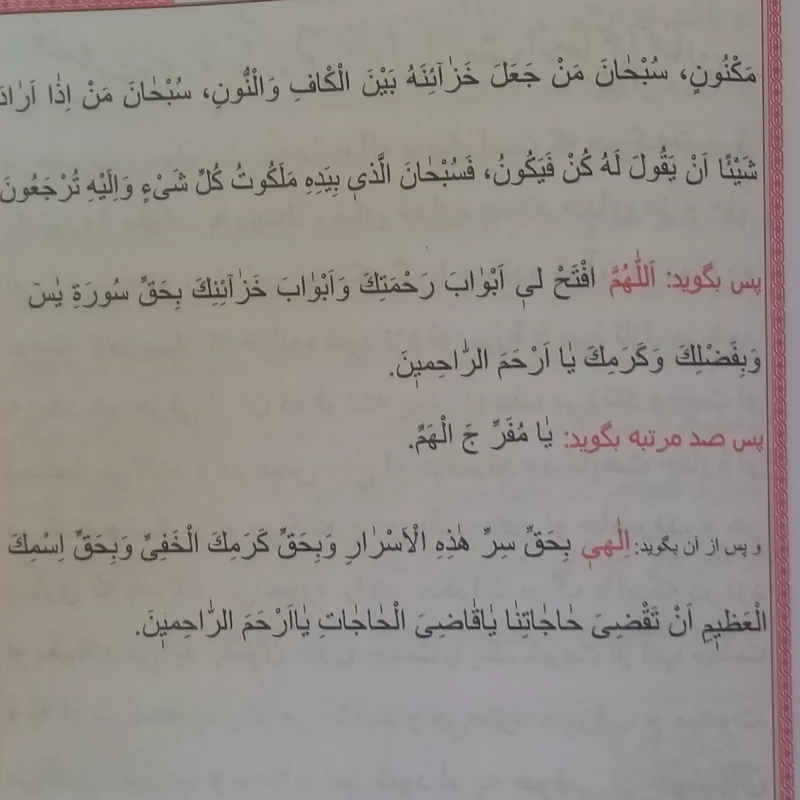 مَكْنُونٍ، سُبْحٰانَ مَنْ جَعَلَ خَزٰآئِنَهُ بَيْنَ الْكٰافِ وَالْنُّونِ، سُبْحٰانَ مَنْ اِذٰا اَرٰادَ
شَيْئًا اَنْ يَقُولَ لَهُ كُنْ فَيَكُونُ، فَسُبْحٰانَ الَّذي بِيَدِهِ مَلَكُوتُ كُلِّ شَيْءٍ وَاِلَيْهِ تُرْجَعُونَ
پس بگوید: اَللّٰهُمَّ افْتَحْ لي اَبْوٰابَ رَحْمَتِكَ وَاَبْوٰابَ خَزٰآئِنِكَ بِحَقِّ سُورَةِ يٰسٓ
وَبِفَضْلِكَ وَكَرَمِكَ يٰا اَرْحَمَ الرّٰاحِمينَ.
پس صد مرتبه بگوید: يٰا مُفَرِّ جَ الْهَمِّ.
و پس از آن بگوید: اِلٰهي بِحَقِّ سِرِّ هٰذِهِ الْاَسْرٰارِ وَبِحَقِّ كَرَمِكَ الْخَفِيِّ وَبِحَقِّ اِسْمِكَ
الْعَظيمِ اَنْ تَقْضِيَ حٰاجٰاتِنٰا يٰاقٰاضِيَ الْحٰاجٰاتِ يٰااَرْحَمَ الرّٰاحِمينَ.